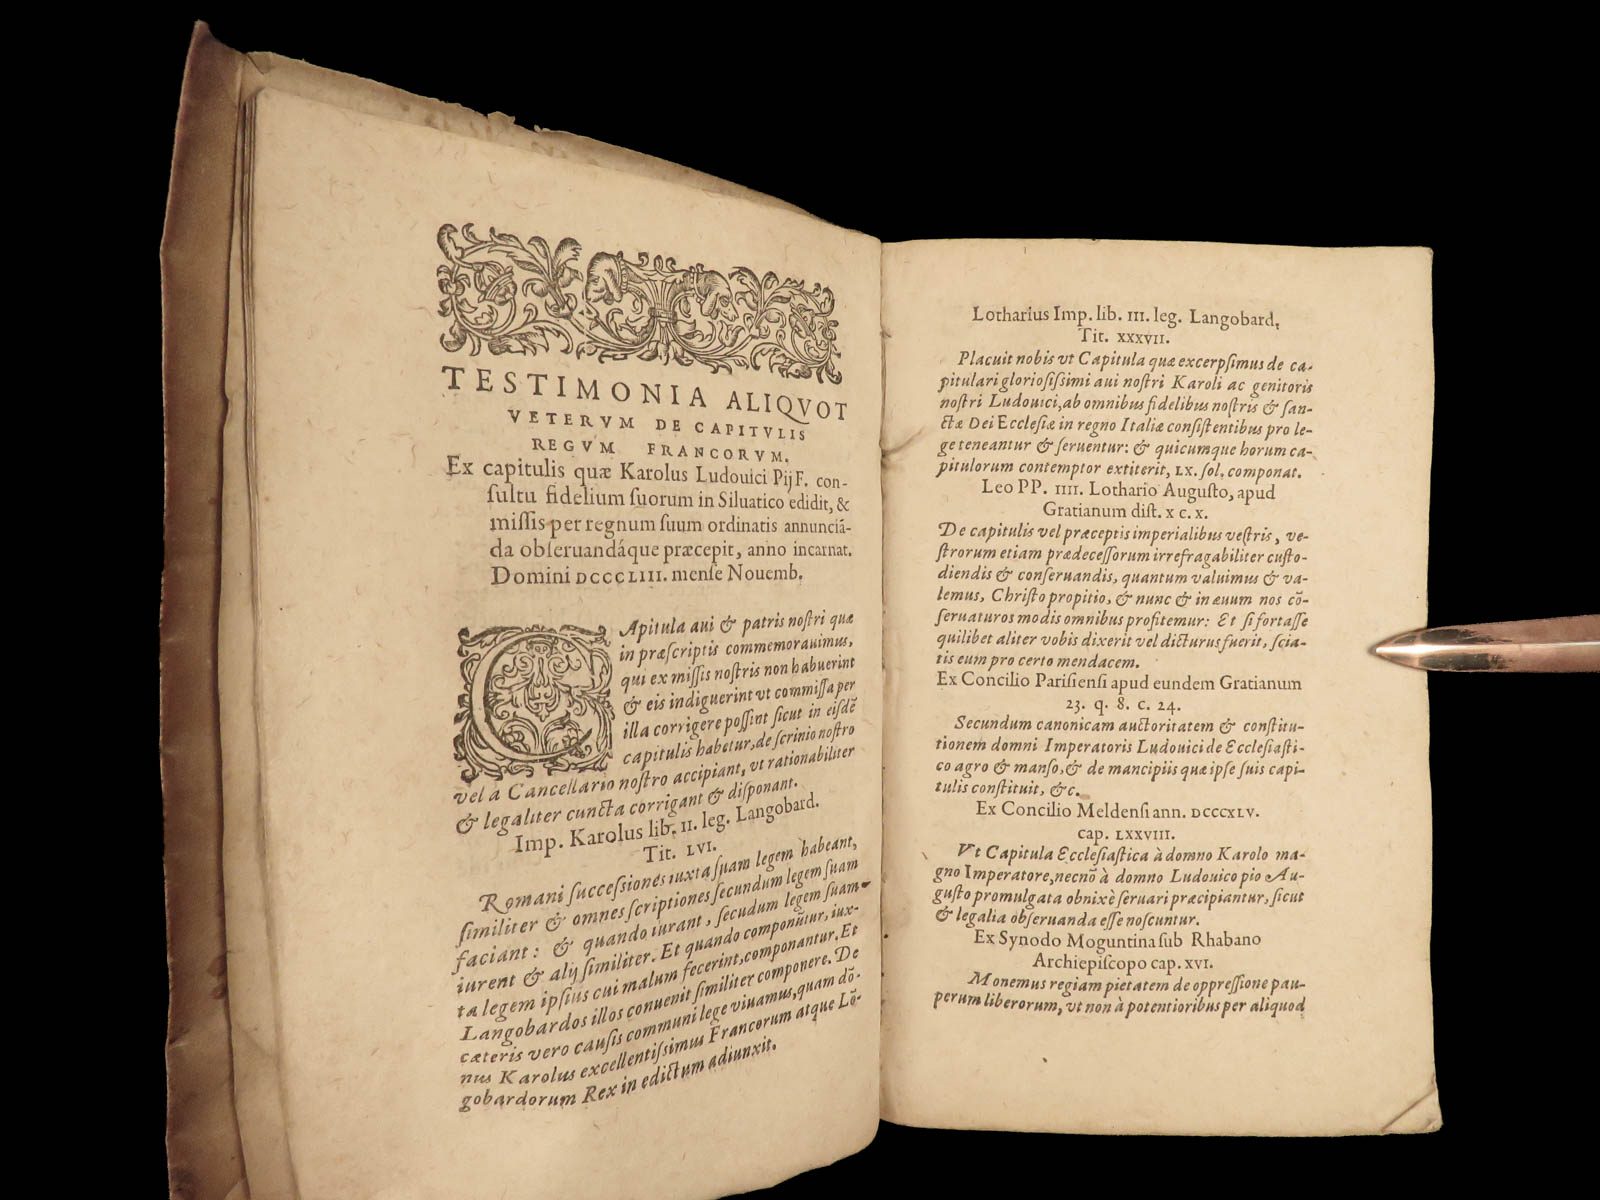 TESTIMONIA ALIQVOT
VETERVM DE CAPITVLIS
REGVM FRANCORVM.
Ex capitulis quæ Karolus Ludouici Pij F. con-
ſultu fidelium ſuorum in Siluatico edidit, &
miſſis per regnum ſuum ordinatis annunciã-
da obſeruandáque præcepit, anno incarnat.
Domini DCCCLIII. menſe Nouemb.
CApitula aui & patris noſtri quæ
in præſcriptis commemorauimus,
qui ex miſſis noſtris non habuerint
& eis indiguerint vt commiſſa per
illa corrigere poſſint ſicut in eiſdẽ
capitulis habetur, de ſcrinio noſtro
vel a Cancellario noſtro accipiant, vt rationabiliter
& legaliter cuncta corrigant & diſponant.
Imp. Karolus lib. II. leg. Langobard.
Tit. LVI.
Romani ſucceſſiones iuxta ſuam legem habeant,
ſimiliter & omnes ſcriptiones ſecundum legem ſuam
faciant: & quando iurant, ſecũdum legem ſuam
iurent & alij ſimiliter. Et quando componũtur, iux-
ta legem ipſius cui malum fecerint, componantur. Et
Langobardos illos conuenit ſimiliter componere. De
cæteris vero cauſis communi lege viuamus, quam dõ-
nus Karolus excellentiſsimus Francorum atque Lõ-
gobardorum Rex in edictum adiunxit.
Lotharius Imp. lib. III. leg. Langobard,
Tit. XXXVII.
Placuit nobis vt Capitula quæ excerpſimus de ca-
pitulari glorioſiſsimi aui noſtri Karoli ac genitoris
noſtri Ludouici, ab omnibus fidelibus noſtris & ſan-
ctæ Dei Eccleſiæ in regno Italiæ conſiſtentibus pro le-
ge teneantur & ſeruentur: & quicumque horum ca-
pitulorum contemptor extiterit, LX. ſol. componat.
Leo PP. IIII. Lothario Auguſto, apud
Gratianum diſt. x c. x.
De capitulis vel præceptis imperialibus veſtris, ve-
ſtrorum etiam prædeceſſorum irrefragabiliter cuſto-
diendis & conſeruandis, quantum valuimus & va-
lemus, Chriſto propitio, & nunc & in æuum nos cõ-
ſeruaturos modis omnibus profitemur: Et ſi fortaſſe
quilibet aliter vobis dixerit vel dicturus fuerit, ſcia-
tis eum pro certo mendacem.
Ex Concilio Pariſienſi apud eundem Gratianum
23. q. 8. c. 24.
Secundum canonicam auctoritatem & conſtitu-
tionem domni Imperatoris Ludouici de Eccleſiaſti-
co agro & manſo, & de mancipiis quæ ipſe ſuis capi-
tulis conſtituit, &c.
Ex Concilio Meldenſi ann. DCCCXLV.
cap. LXXVIII.
Vt Capitula Eccleſiaſtica à domno Karolo ma-
gno Imperatore, necnõ à domno Ludouico pio Au-
guſto promulgata obnixè ſeruari præcipiantur, ſicut
& legalia obſeruanda eſſe noſcuntur.
Ex Synodo Moguntina ſub Rhabano
Archiepiſcopo cap. XVI.
Monemus regiam pietatem de oppreſſione pau-
perum liberorum, vt non à potentioribus per aliquod